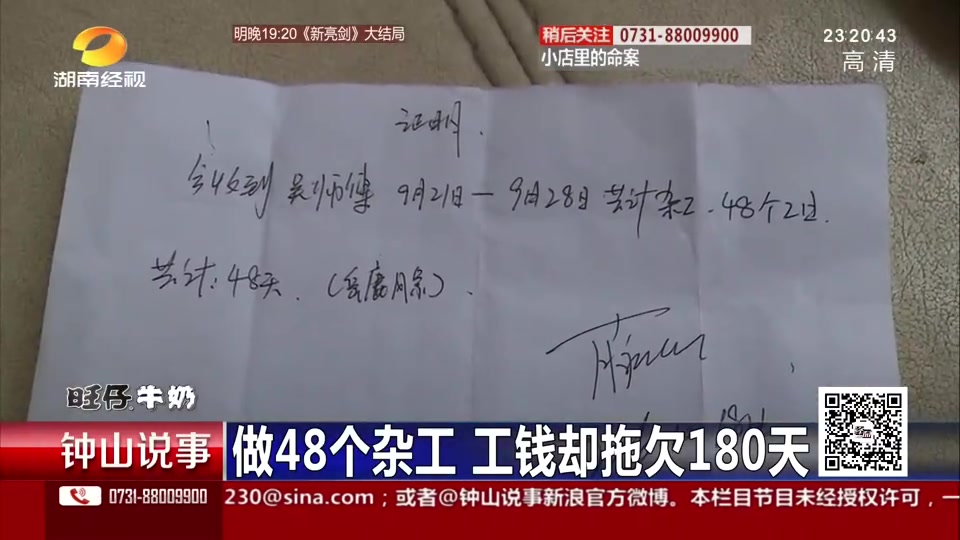 明晚19:20《新亮剑》大结局
稍后关注 0731-88009900
小店里的命案
23:20:43
高清
湖南经视
证明.
今收到 吴师傅 9月21日—9月28日 共计杂工.48个工日.
共计:48天.
旺仔牛奶
钟山说事
做48个杂工 工钱却拖欠180天
0731-88009900
230@sina.com；或者@钟山说事新浪官方微博。本栏目节目未经授权许可，一